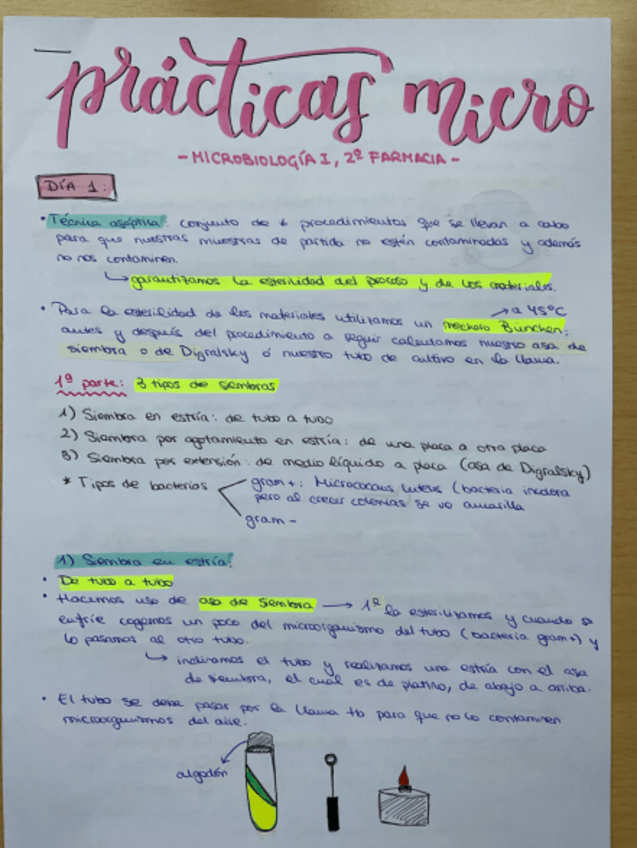 prácticas micro
- MICROBIOLOGÍA I, 2º FARMACIA -
DÍA 1:
• Técnica aséptica: conjunto de + procedimientos que se llevan a cabo
para que nuestras muestras de partida no estén contaminadas y además
no nos contaminen.
↳ garantizamos la esterilidad del proceso y de los materiales.
→ a 45ºC
• Para la esterilidad de los materiales utilizamos un mechero Bünchen:
antes y después del procedimiento a seguir calentamos nuestro asa de
siembra o de Digralsky ó nuestro tubo de cultivo en la llama.
1ª parte: 3 tipos de siembras
1) Siembra en estría: de tubo a tubo
2) Siembra por agotamiento en estría: de una placa a otra placa
3) Siembra por extensión: de medio líquido a placa (asa de Digralsky)
* Tipos de bacterias
gram +: Micrococcus luteus (bacteria inodora
pero al crecer colonias se ve amarilla
gram -
1) Siembra en estría:
• De tubo a tubo
• Hacemos uso de asa de siembra → 1º la esterilizamos y cuando se
enfríe cogemos un poco del microorganismo del tubo (bacteria gram +) y
lo pasamos al otro tubo.
↳ inclinamos el tubo y realizamos una estría con el asa
de siembra, el cual es de platino, de abajo a arriba.
• El tubo se debe pasar por la llama tb para que no lo contaminen
microorganismos del aire.
algodón